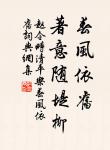 春風依舊
著意隨堤柳
趙令畤清平樂春風依
舊詞興網集